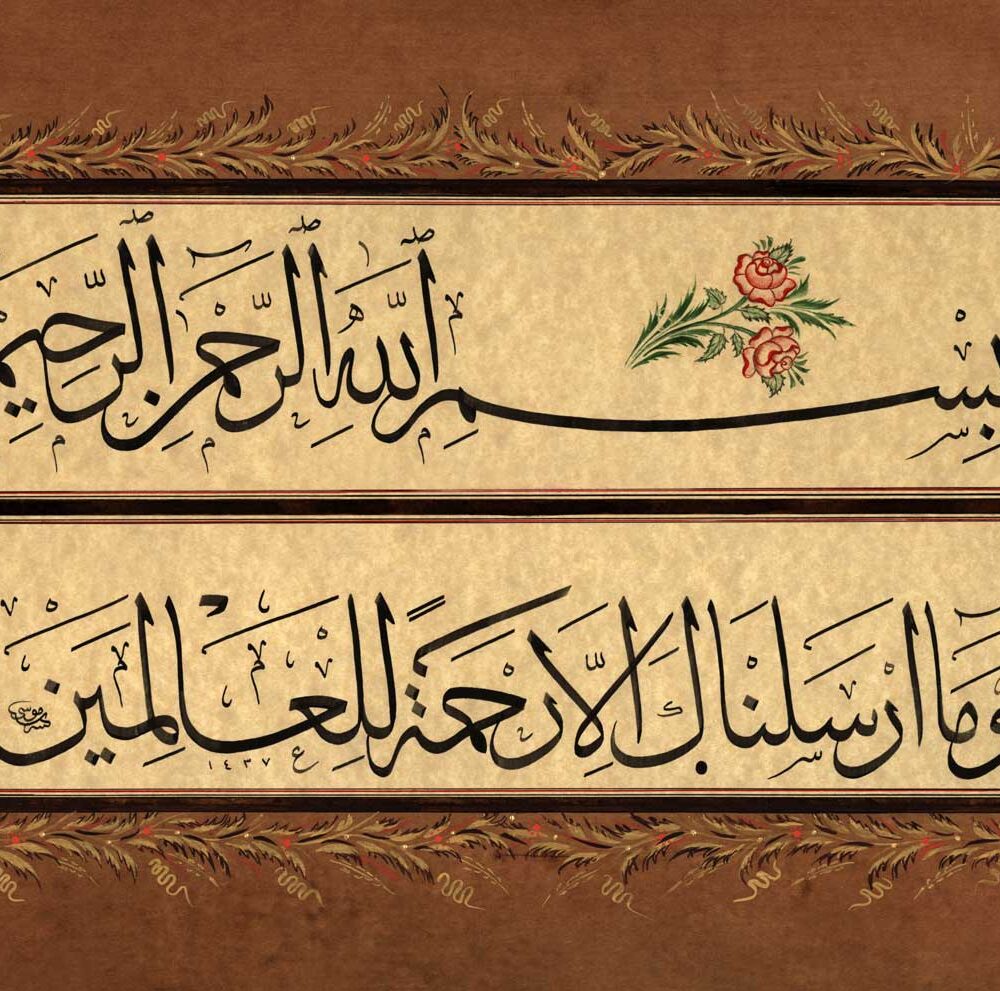 بِسْمِ ٱللّٰهِ ٱلرَّحْمٰنِ ٱلرَّحِيمِ
وَمَا أَرْسَلْنَاكَ إِلَّا رَحْمَةً لِلْعَالَمِينَ
١٤٣٧